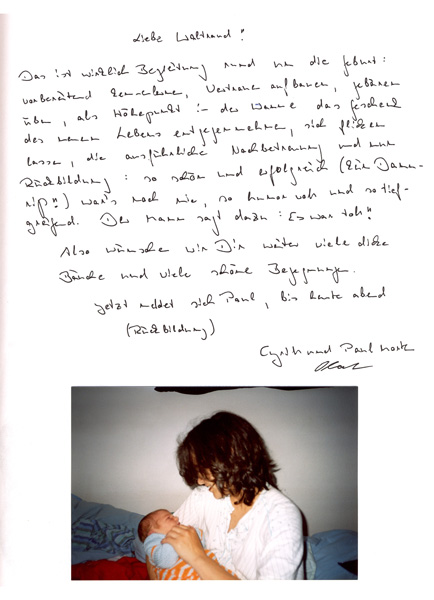 Liebe Waltraud!
Das ist wirklich Begleitung rund um die Geburt:
vorbereitend kennenlernen, Vertrauen aufbauen, gebären
üben, als Höhepunkt in der Wanne das Geschenk
des neuen Lebens entgegennehmen, sich flicken
lassen, die ausführliche Nachbetreuung und nun
Rückbildung: so schön und erfolgreich (Ein Damm-
riß!!) war's noch nie, so humorvoll und so tief-
greifend. Der Mann sagt dazu: Es war toll!!
Also wünschen wir Dir weiter viele dicke
Bäuche und viele schöne Begegnungen.
Jetzt meldet sich Paul, bis heute abend
(Rückbildung)
und Paul